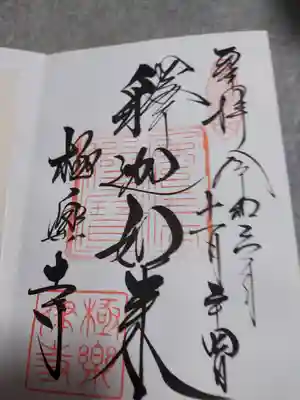 奉拝 令和三年
十一月二十四日
釋迦如来
極楽寺
極樂律寺